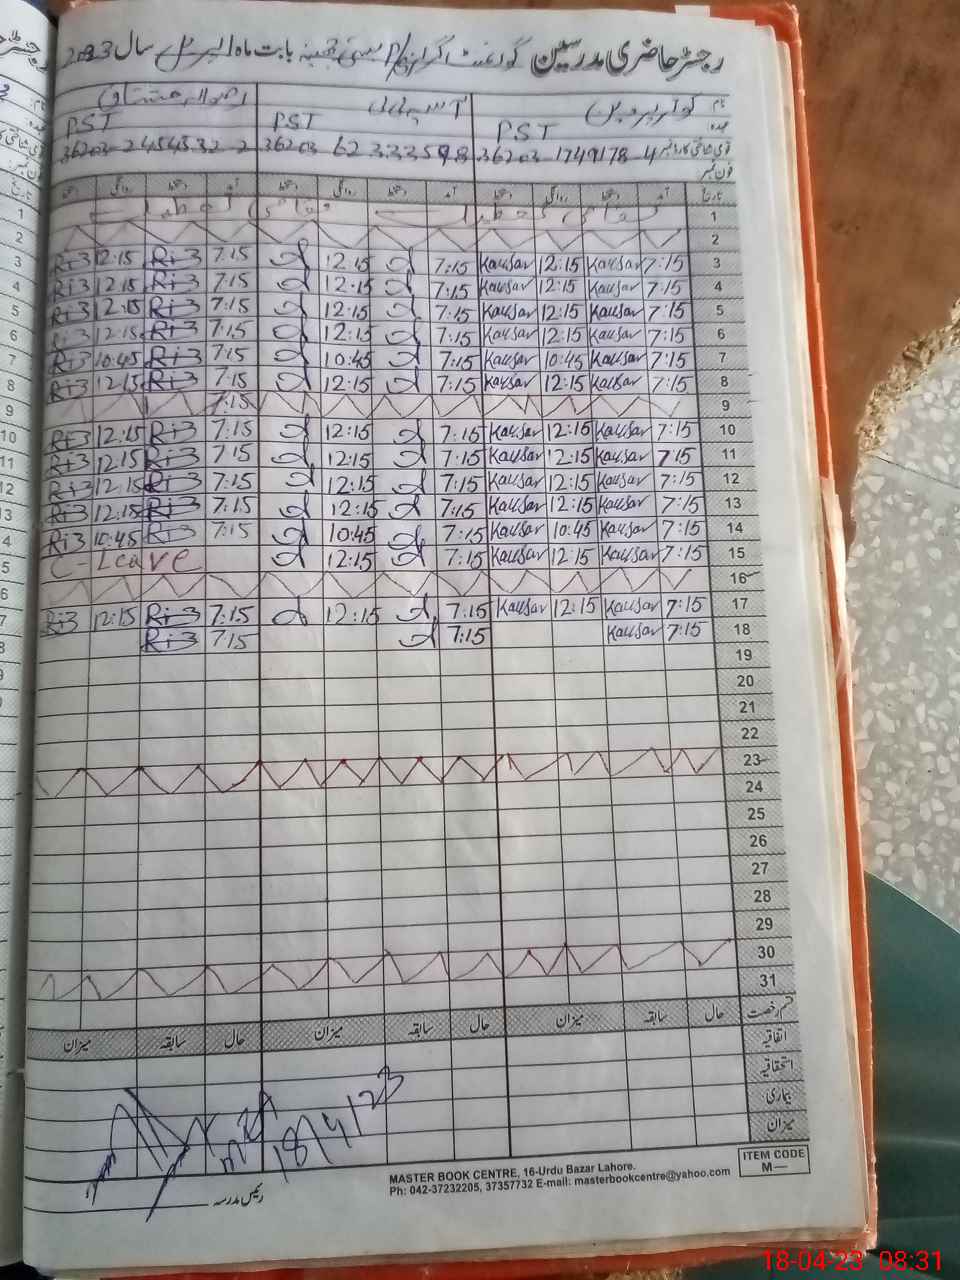 رجسٹر حاضری مدرسین گورنمنٹ بابت ماہ اپریل سال 2023
نام کوثر پروین
عہدہ PST PST PST
قومی شناختی کارڈ نمبر 36203-1749178-4 36203 62 333598 36203-2454532-2
فون نمبر
تاریخ آمد دستخط روانگی دستخط آمد دستخط روانگی دستخط آمد دستخط روانگی دستخط
1
2
3 7:15 Kausar 12:15 Kausar 7:15 12:15 7:15 Ri3 12:15 Ri3
4 7:15 Kausar 12:15 Kausar 7:15 12:15 7:15 Ri3 12:15 Ri3
5 7:15 Kausar 12:15 Kausar 7:15 12:15 7:15 Ri3 12:15 Ri3
6 7:15 Kausar 12:15 Kausar 7:15 12:15 7:15 Ri3 12:15 Ri3
7 7:15 Kausar 10:45 Kausar 7:15 10:45 7:15 Ri3 10:45 Ri3
8 7:15 Kausar 12:15 Kausar 7:15 12:15 7:15 Ri3 12:15 Ri3
9 7:15
10 7:15 Kausar 12:15 Kausar 7:15 12:15 7:15 Ri3 12:15 Ri3
11 7:15 Kausar 12:15 Kausar 7:15 12:15 7:15 Ri3 12:15 Ri3
12 7:15 Kausar 12:15 Kausar 7:15 12:15 7:15 Ri3 12:15 Ri3
13 7:15 Kausar 12:15 Kausar 7:15 12:15 7:15 Ri3 12:15 Ri3
14 7:15 Kausar 10:45 Kausar 7:15 10:45 7:15 Ri3 10:45 Ri3
15 7:15 Kausar 12:15 Kausar 7:15 12:15 C-Leave
16
17 7:15 Kausar 12:15 Kausar 7:15 12:15 7:15 Ri3 12:15 Ri3
18 7:15 Kausar 7:15 7:15 Ri3
19
20
21
22
23
24
25
26
27
28
29
30
31
قسم رخصت حال سابقہ میزان حال سابقہ میزان حال سابقہ میزان
اتفاقیہ
استحقاقیہ
بیماری
میزان
18/4/23
رئیس مدرسہ
MASTER BOOK CENTRE, 16-Urdu Bazar Lahore.
Ph: 042-37232205, 37357732 E-mail: masterbookcentre@yahoo.com
ITEM CODE
M—
18-04-23 08:31